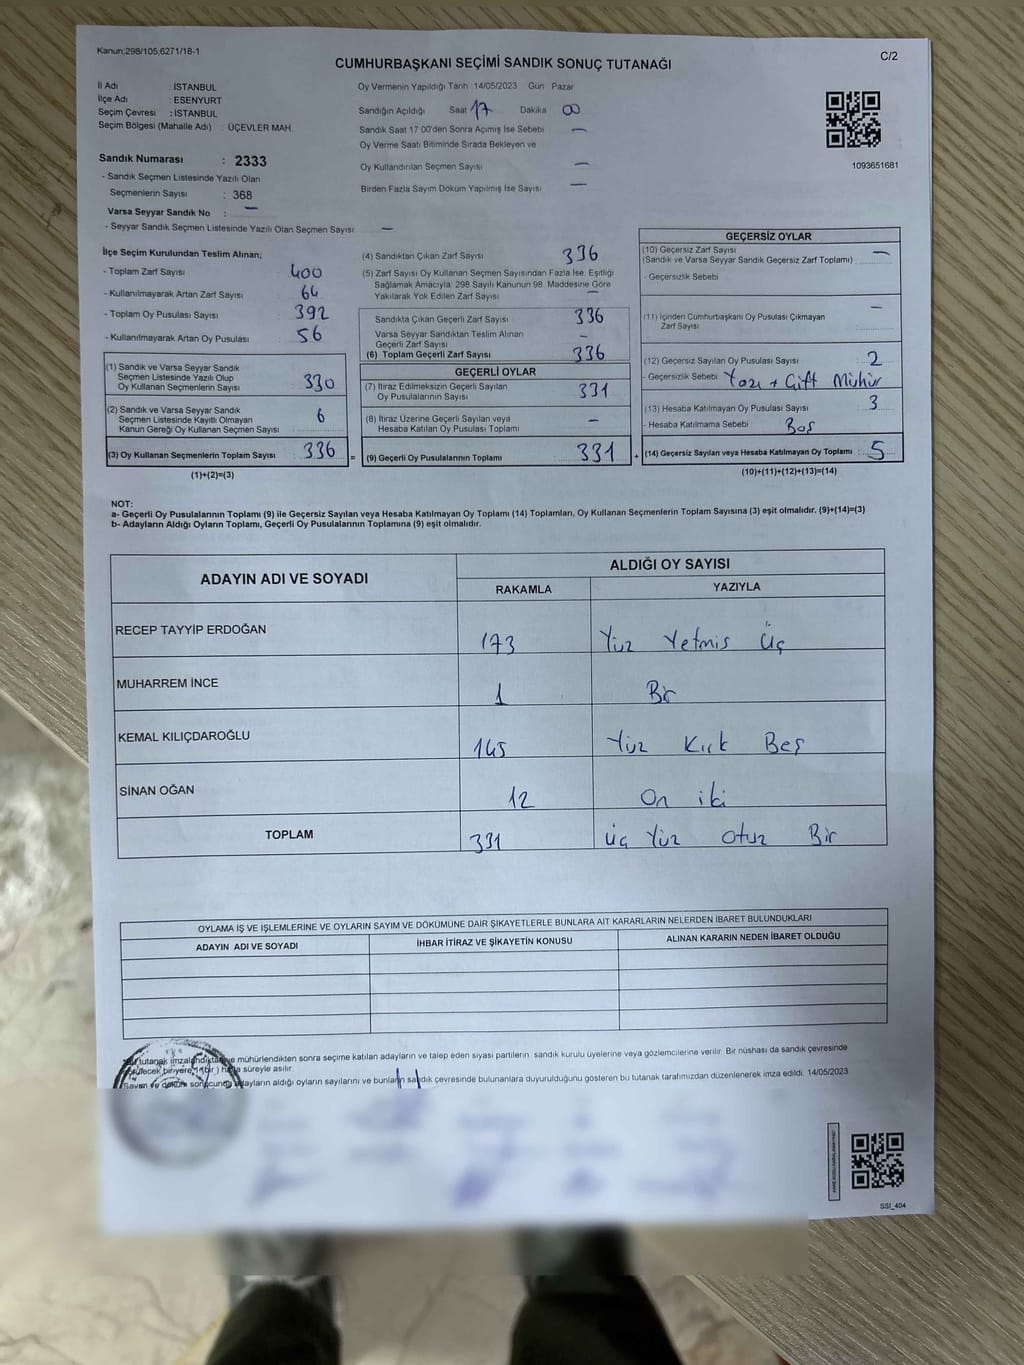 Kanun:298/105;6271/18-1
C/2
CUMHURBAŞKANI SEÇİMİ SANDIK SONUÇ TUTANAĞI
İl Adı : İSTANBUL
İlçe Adı : ESENYURT
Seçim Çevresi : İSTANBUL
Seçim Bölgesi (Mahalle Adı) : ÜÇEVLER MAH.
Sandık Numarası : 2333
- Sandık Seçmen Listesinde Yazılı Olan
Seçmenlerin Sayısı : 368
Varsa Seyyar Sandık No : —
- Seyyar Sandık Seçmen Listesinde Yazılı Olan Seçmen Sayısı : —
Oy Vermenin Yapıldığı Tarih 14/05/2023 Gün Pazar
Sandığın Açıldığı Saat 17 Dakika 00
Sandık Saat 17 00'den Sonra Açımış İse Sebebi —
Oy Verme Saati Bitiminde Sırada Bekleyen ve
Oy Kullandırılan Seçmen Sayısı —
Birden Fazla Sayım Döküm Yapılmış İse Sayısı —
1093651681
İlçe Seçim Kurulundan Teslim Alınan;
- Toplam Zarf Sayısı 400
- Kullanılmayarak Artan Zarf Sayısı 64
- Toplam Oy Pusulası Sayısı 392
- Kullanılmayarak Artan Oy Pusulası 56
(1) Sandık ve Varsa Seyyar Sandık
Seçmen Listesinde Yazılı Olup
Oy Kullanan Seçmenlerin Sayısı 330
(2) Sandık ve Varsa Seyyar Sandık
Seçmen Listesinde Kayıtlı Olmayan
Kanun Gereği Oy Kullanan Seçmen Sayısı 6
(3) Oy Kullanan Seçmenlerin Toplam Sayısı 336 =
(1)+(2)=(3)
(4) Sandıktan Çıkan Zarf Sayısı 336
(5) Zarf Sayısı Oy Kullanan Seçmen Sayısından Fazla İse, Eşitliği
Sağlamak Amacıyla; 298 Sayılı Kanunun 98. Maddesine Göre
Yakılarak Yok Edilen Zarf Sayısı —
Sandıkta Çıkan Geçerli Zarf Sayısı 336
Varsa Seyyar Sandıktan Teslim Alınan
Geçerli Zarf Sayısı —
(6) Toplam Geçerli Zarf Sayısı 336
GEÇERLİ OYLAR
(7) İtiraz Edilmeksizin Geçerli Sayılan
Oy Pusulalarının Sayısı 331
(8) İtiraz Üzerine Geçerli Sayılan veya
Hesaba Katılan Oy Pusulası Toplamı —
(9) Geçerli Oy Pusulalarının Toplamı 331 +
GEÇERSİZ OYLAR
(10) Geçersiz Zarf Sayısı
(Sandık ve Varsa Seyyar Sandık Geçersiz Zarf Toplamı) : —
- Geçersizlik Sebebi
(11) İçinden Cumhurbaşkanı Oy Pusulası Çıkmayan —
Zarf Sayısı
(12) Geçersiz Sayılan Oy Pusulası Sayısı : 2
- Geçersizlik Sebebi Yazı + Çift Mühür
(13) Hesaba Katılmayan Oy Pusulası Sayısı : 3
- Hesaba Katılmama Sebebi : Boş
(14) Geçersiz Sayılan veya Hesaba Katılmayan Oy Toplamı : 5
(10)+(11)+(12)+(13)=(14)
NOT:
a- Geçerli Oy Pusulalarının Toplamı (9) ile Geçersiz Sayılan veya Hesaba Katılmayan Oy Toplamı (14) Toplamları, Oy Kullanan Seçmenlerin Toplam Sayısına (3) eşit olmalıdır. (9)+(14)=(3)
b- Adayların Aldığı Oyların Toplamı, Geçerli Oy Pusulalarının Toplamına (9) eşit olmalıdır.
ADAYIN ADI VE SOYADI ALDIĞI OY SAYISI
RAKAMLA YAZIYLA
RECEP TAYYİP ERDOĞAN 173 Yüz Yetmis Üç
MUHARREM İNCE 1 Bir
KEMAL KILIÇDAROĞLU 145 Yüz Kırk Beş
SİNAN OĞAN 12 On iki
TOPLAM 331 Üç Yüz Otuz Bir
OYLAMA İŞ VE İŞLEMLERİNE VE OYLARIN SAYIM VE DÖKÜMÜNE DAİR ŞİKAYETLERLE BUNLARA AİT KARARLARIN NELERDEN İBARET BULUNDUKLARI
ADAYIN ADI VE SOYADI İHBAR İTİRAZ VE ŞİKAYETİN KONUSU ALINAN KARARIN NEDEN İBARET OLDUĞU
tutanak imzalandıktan ve mühürlendikten sonra seçime katılan adayların ve talep eden siyasi partilerin sandık kurulu üyelerine veya gözlemcilerine verilir. Bir nüshası da sandık çevresinde
bir yere, 1 (bir) hafta süreyle asılır.
Sayım ve döküm sonucunda adayların aldığı oyların sayılarını ve bunların sandık çevresinde bulunanlara duyurulduğunu gösteren bu tutanak tarafımızdan düzenlenerek imza edildi. 14/05/2023
SSI_404